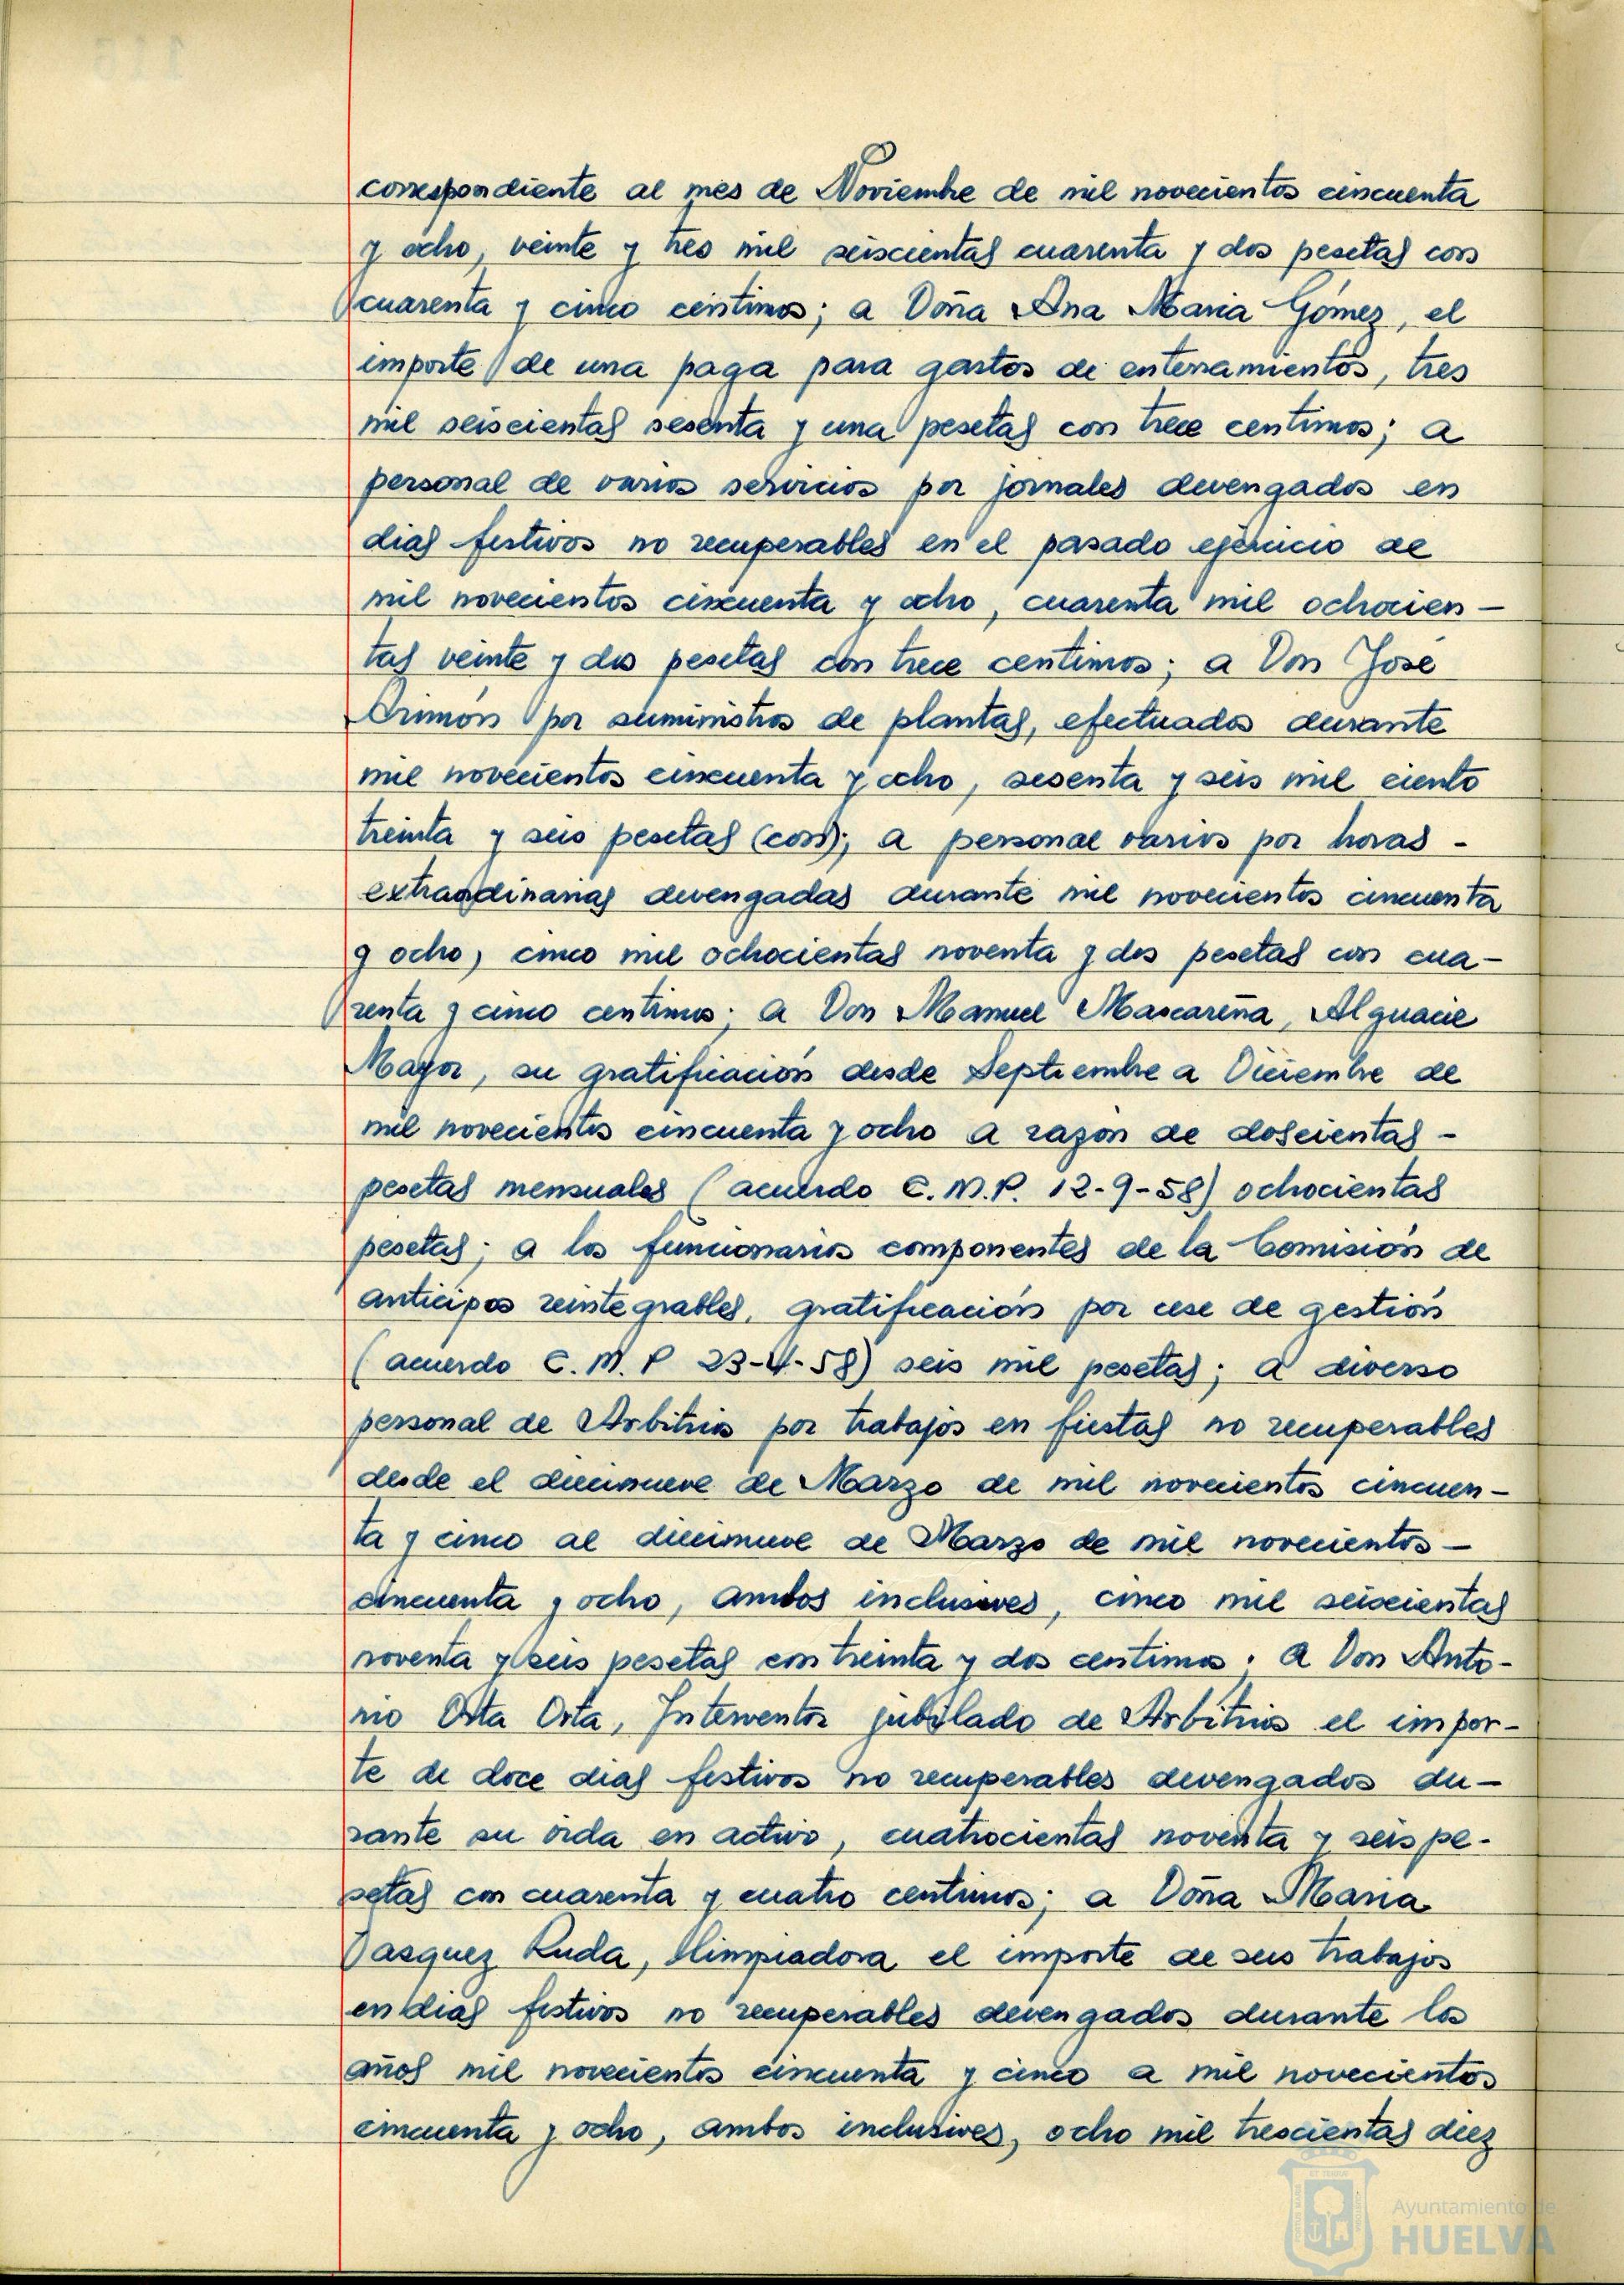 correspondiente al mes de Noviembre de mil novecientos cincuenta
y ocho, veinte y tres mil seiscientas cuarenta y dos pesetas con
cuarenta y cinco centimos; a Doña Ana Maria Gómez, el
importe de una paga para gastos de enterramientos, tres
mil seiscientas sesenta y una pesetas con trece centimos; a
personal de varios servicios por jornales devengados en
dias festivos no recuperables en el pasado ejercicio de
mil novecientos cincuenta y ocho, cuarenta mil ochocien-
tas veinte y dos pesetas con trece centimos; a Don José
Arimón por suministros de plantas, efectuados durante
mil novecientos cincuenta y ocho, sesenta y seis mil ciento
treinta y seis pesetas (con); a personal varios por horas -
extraordinarias devengadas durante mil novecientos cincuenta
y ocho, cinco mil ochocientas noventa y dos pesetas con cua-
renta y cinco centimos; a Don Manuel Mascareña, Alguacil
Mayor, su gratificación desde Septiembre a Diciembre de
mil novecientos cincuenta y ocho a razón de doscientas -
pesetas mensuales (acuerdo C.M.P. 12-9-58) ochocientas
pesetas; a los funcionarios componentes de la Comisión de
anticipos reintegrables, gratificación por cese de gestión
(acuerdo C.M.P 23-4-58) seis mil pesetas; a diverso
personal de Arbitrios por trabajos en fiestas no recuperables
desde el diecinueve de Marzo de mil novecientos cincuen-
ta y cinco al diecinueve de Marzo de mil novecientos -
cincuenta y ocho, ambos inclusives, cinco mil seiscientas
noventa y seis pesetas con treinta y dos centimos; a Don Anto-
nio Orta Orta, Interventor jubilado de Arbitrios el impor-
te de doce dias festivos no recuperables devengados du-
rante su vida en activo, cuatrocientas noventa y seis pe-
setas con cuarenta y cuatro centimos; a Doña Maria
Vasquez Ruda, limpiadora el importe de sus trabajos
en dias festivos no recuperables devengados durante los
años mil novecientos cincuenta y cinco a mil novecientos
cincuenta y ocho, ambos inclusives, ocho mil trescientas diez
Ayuntamiento de
HUELVA